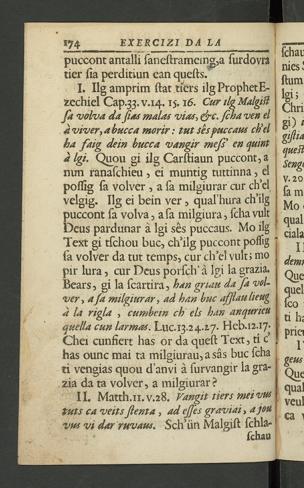 174 EXERCIZI DA LA
puccont antalli sanestrameing, a surdovra
tier sia perditiun ean quests.
I. Ilg amprim stat tiers ilg Prophet E-
zechiel Cap. 33. v. 14. 15. 16. Cur ilg Malgist
sa volva da sias malas vias, &c. scha ven el
à viver, a bucca morir: tut sês puccaus ch'el
ha faig dein bucca vangir mess' en quint
à lgi. Quou gi ilg Carstiaun puccont, a
nun ranaschieu, ei muntig tuttinna, el
possig sa volver, a sa milgiurar cur ch'el
velgig. Ilg ei bein ver, qual'hura ch'ilg
puccont sa volva, a sa milgiura, scha vult
Deus pardunar à lgi sês puccaus. Mo ilg
Text gi tschou buc, ch'ilg puccont possig
sa volver da tut temps, cur ch'el vult; mo
pir lura, cur Deus porsch' à lgi la grazia.
Bears, gi la scartira, han griau da sa vol-
ver, a sa milgiurar, ad han buc
à la rigla, cumbein ch els han anquericu
quella cun larmas. Luc. 13. 24. 27. Heb. 12. 17.
Chei cunsiert has or da quest Text, ti c'
has ounc mai ta milgiurau, a sâs buc scha
ti vengias quou d'anvi à survangir la gra-
zia da ta volver, a milgiurar?
II. Matth. 11. v. 28. Vangit tiers mei vus
tuts ca veits stenta, ad esses graviai, a jou
vus vi dar ruvaus. Sch'ün Malgist schla-
schau